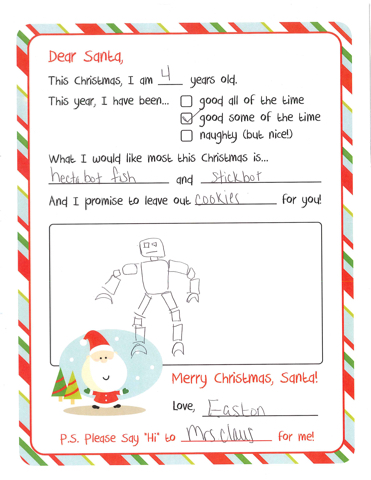 Dear Santa,
This Christmas, I am 4 years old.
This year, I have been... good all of the time
good some of the time
naughty (but nice!)
What I would like most this Christmas is...
hecto bot fish and stickbot
And I promise to leave out cookies for you!
Merry Christmas, Santa!
Love, Easton
P.S. Please Say "Hi" to Mrs claus for me!